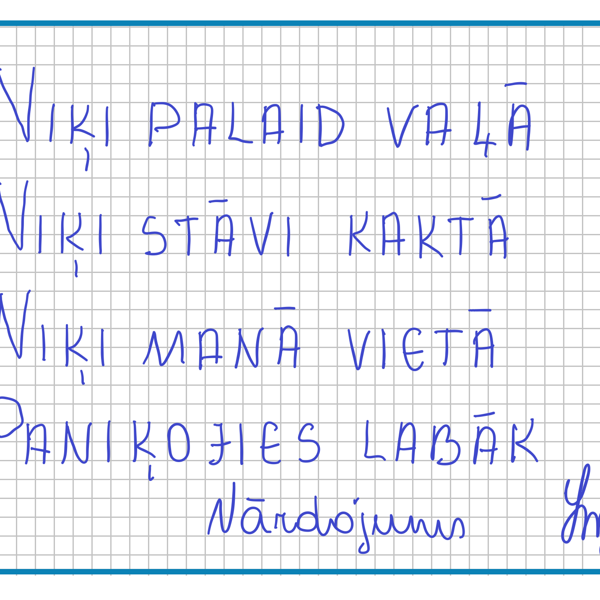 VIĶI PALAID VAĻĀ
VIĶI STĀVI KAKTĀ
VIĶI MANĀ VIETĀ
PANIĶOJIES LABĀK
Nārdojums